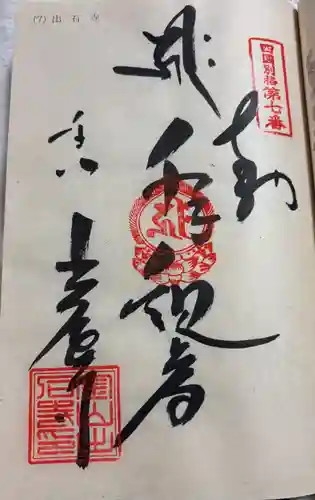 (7) 出石寺
四國別格第七番
奉
千手観音
金山
出石寺